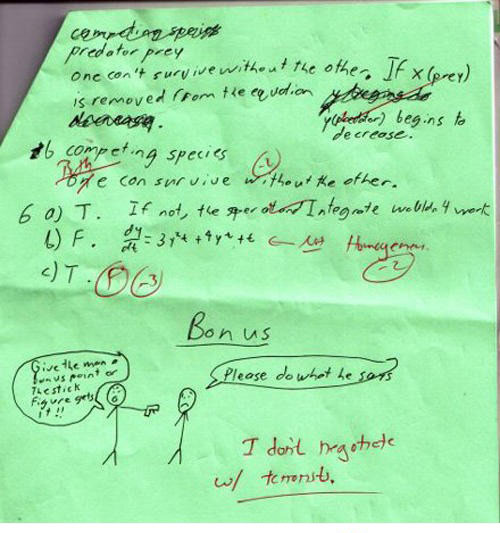 competing species
predator prey
one can't survive without the other. If x(prey)
is removed from the equation y begins to
decrease. y(predator) begins to
decrease.
1b competing species
Both
one can survive without the other. -2
6 a) T. If not, the Integrate wouldn't work
b) F. dy/dt = 3y²t + 4y²t + t ← not Homogeneous.
-2
c) T. F -3
Bonus
Give the man a
bonus point or
the stick
Figure gets
it!!
Please do what he says
I don't negotiate
w/ terrorists.